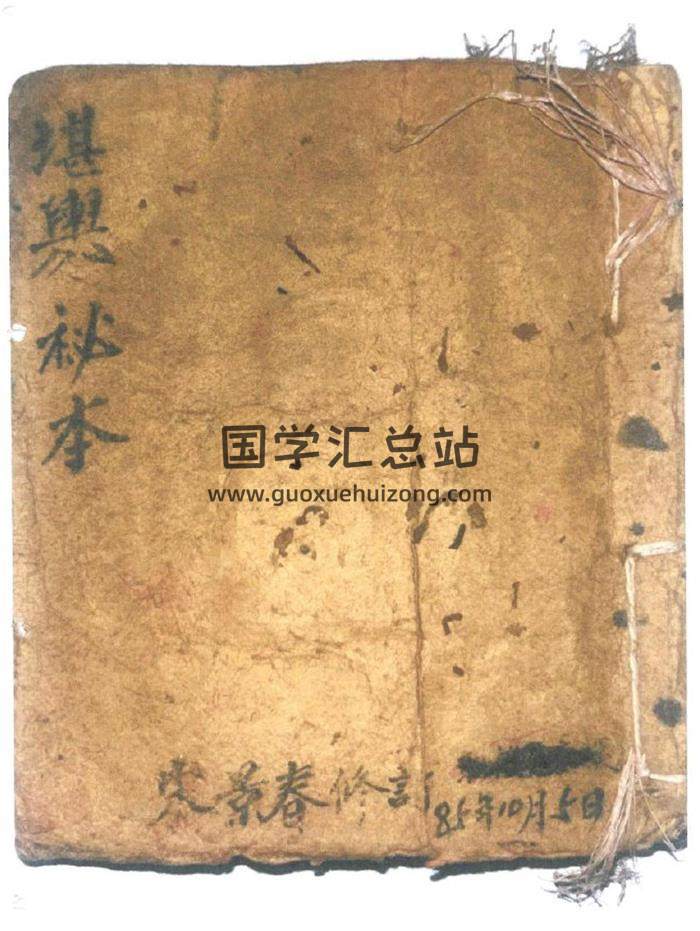 堪輿秘本
国学汇总站
www.guoxuehuizong.com
景春修訂
85年10月5日